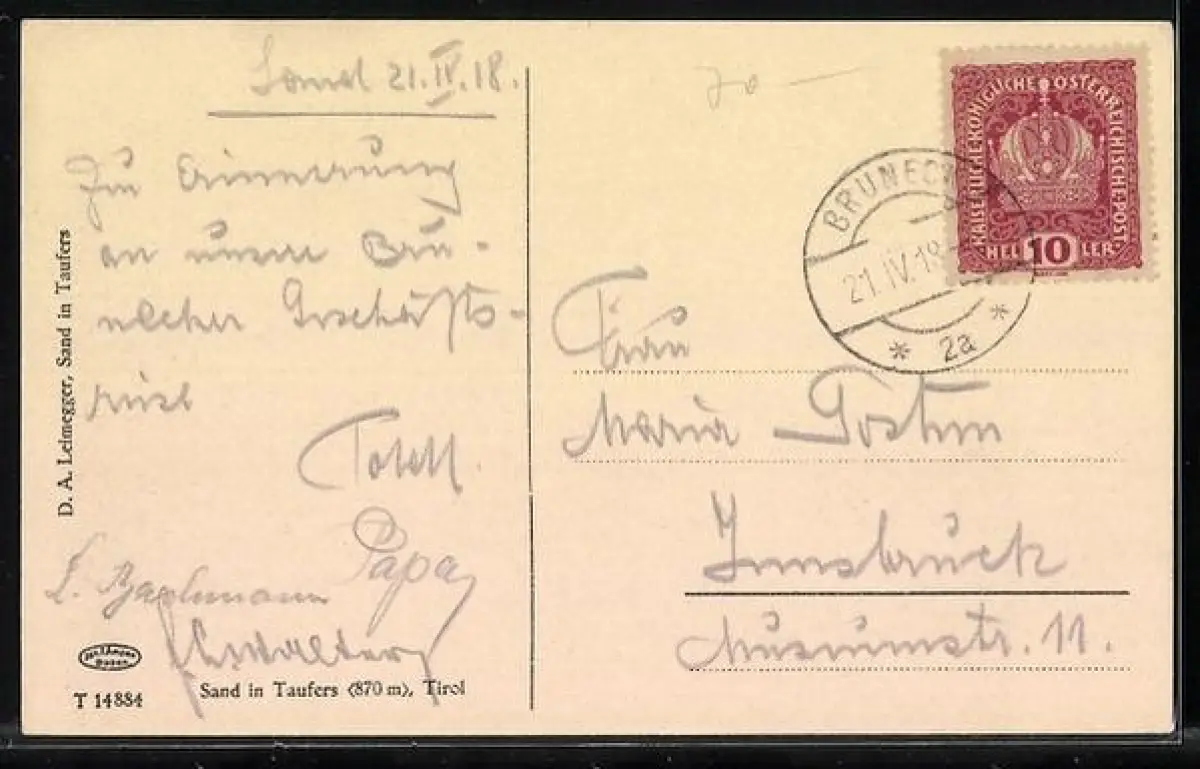 Sand 21.IV.18.
Zur Erinnerung
an unsere Bru-
necker Geschäfts-
reise
Papa
Walter
D. A. Leimegger, Sand in Taufers
T 14884
Sand in Taufers (870 m), Tirol
70 —
KAISERLICHE KÖNIGLICHE ÖSTERREICHISCHE POST
HELLER
10
BRUNECK
21.IV.18
* 2a *
Frau
Maria
Innsbruck
Museumstr. 11.